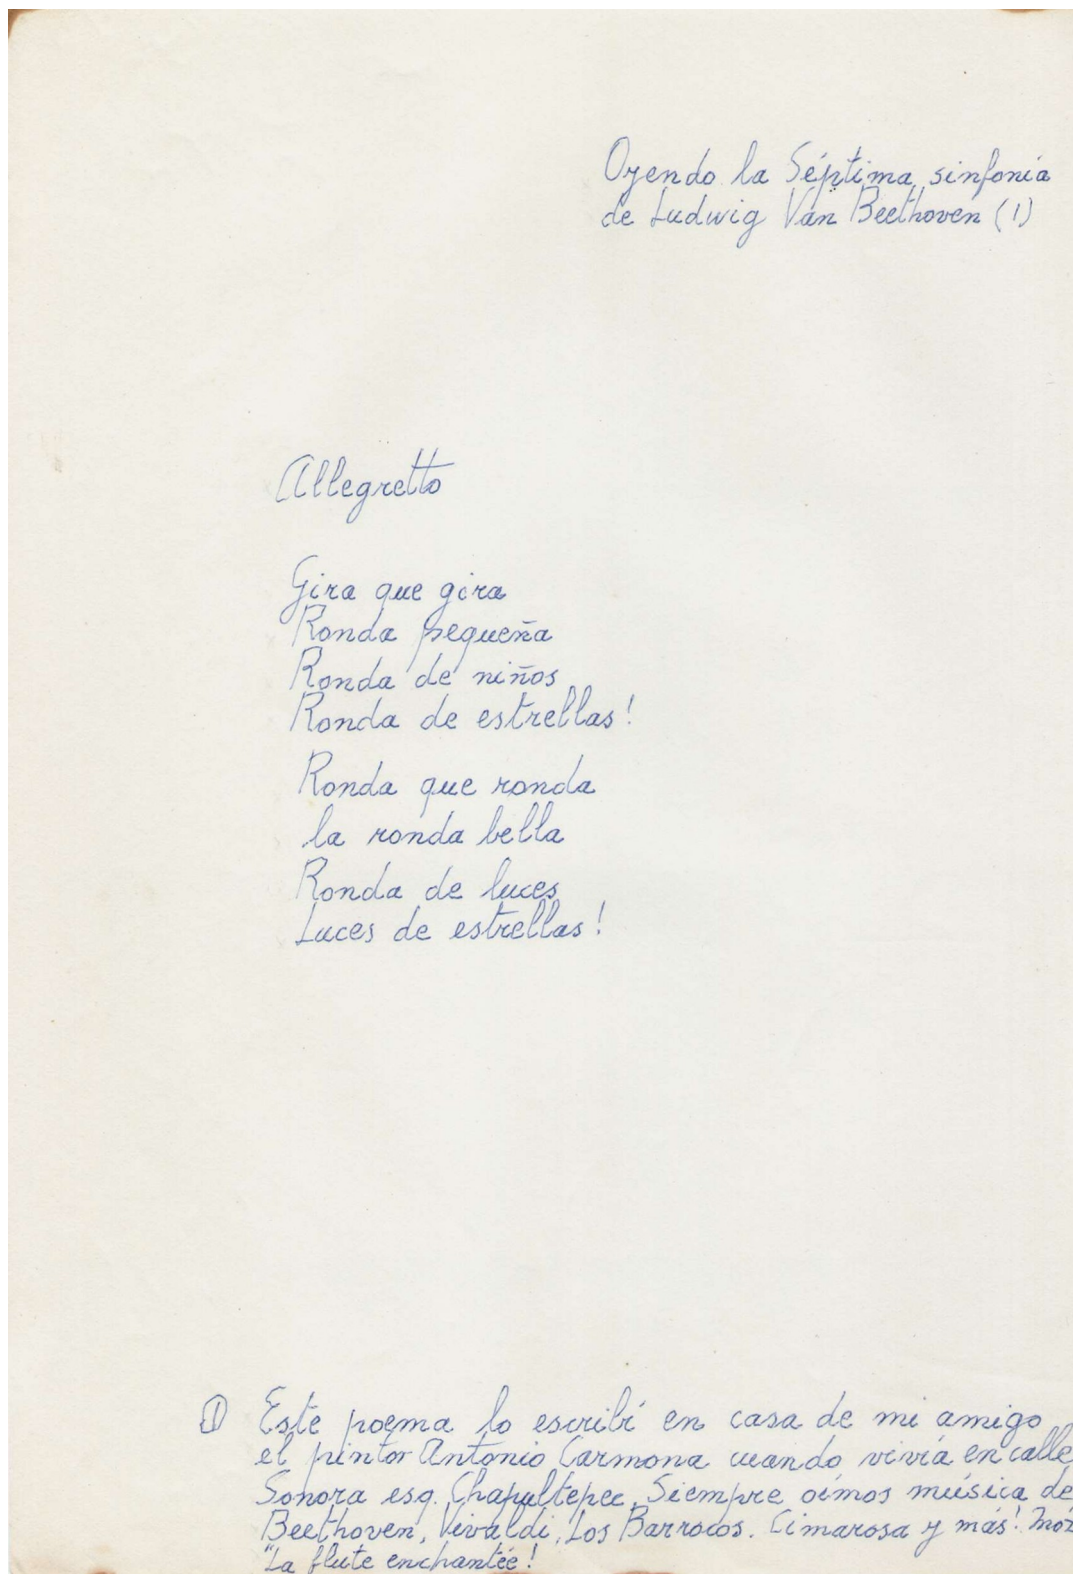 Oyendo la Séptima sinfonía
de Ludwig Van Beethoven (1)
Allegretto
Gira que gira
Ronda pequeña
Ronda de niños
Ronda de estrellas!
Ronda que ronda
la ronda bella
Ronda de luces
Luces de estrellas!
① Este poema lo escribí en casa de mi amigo
el pintor Antonio Carmona cuando vivía en calle
Sonora esq. Chapultepec. Siempre oímos música de
Beethoven, Vivaldi, Los Barrocos. Cimarosa y más!
"La flute enchantée!